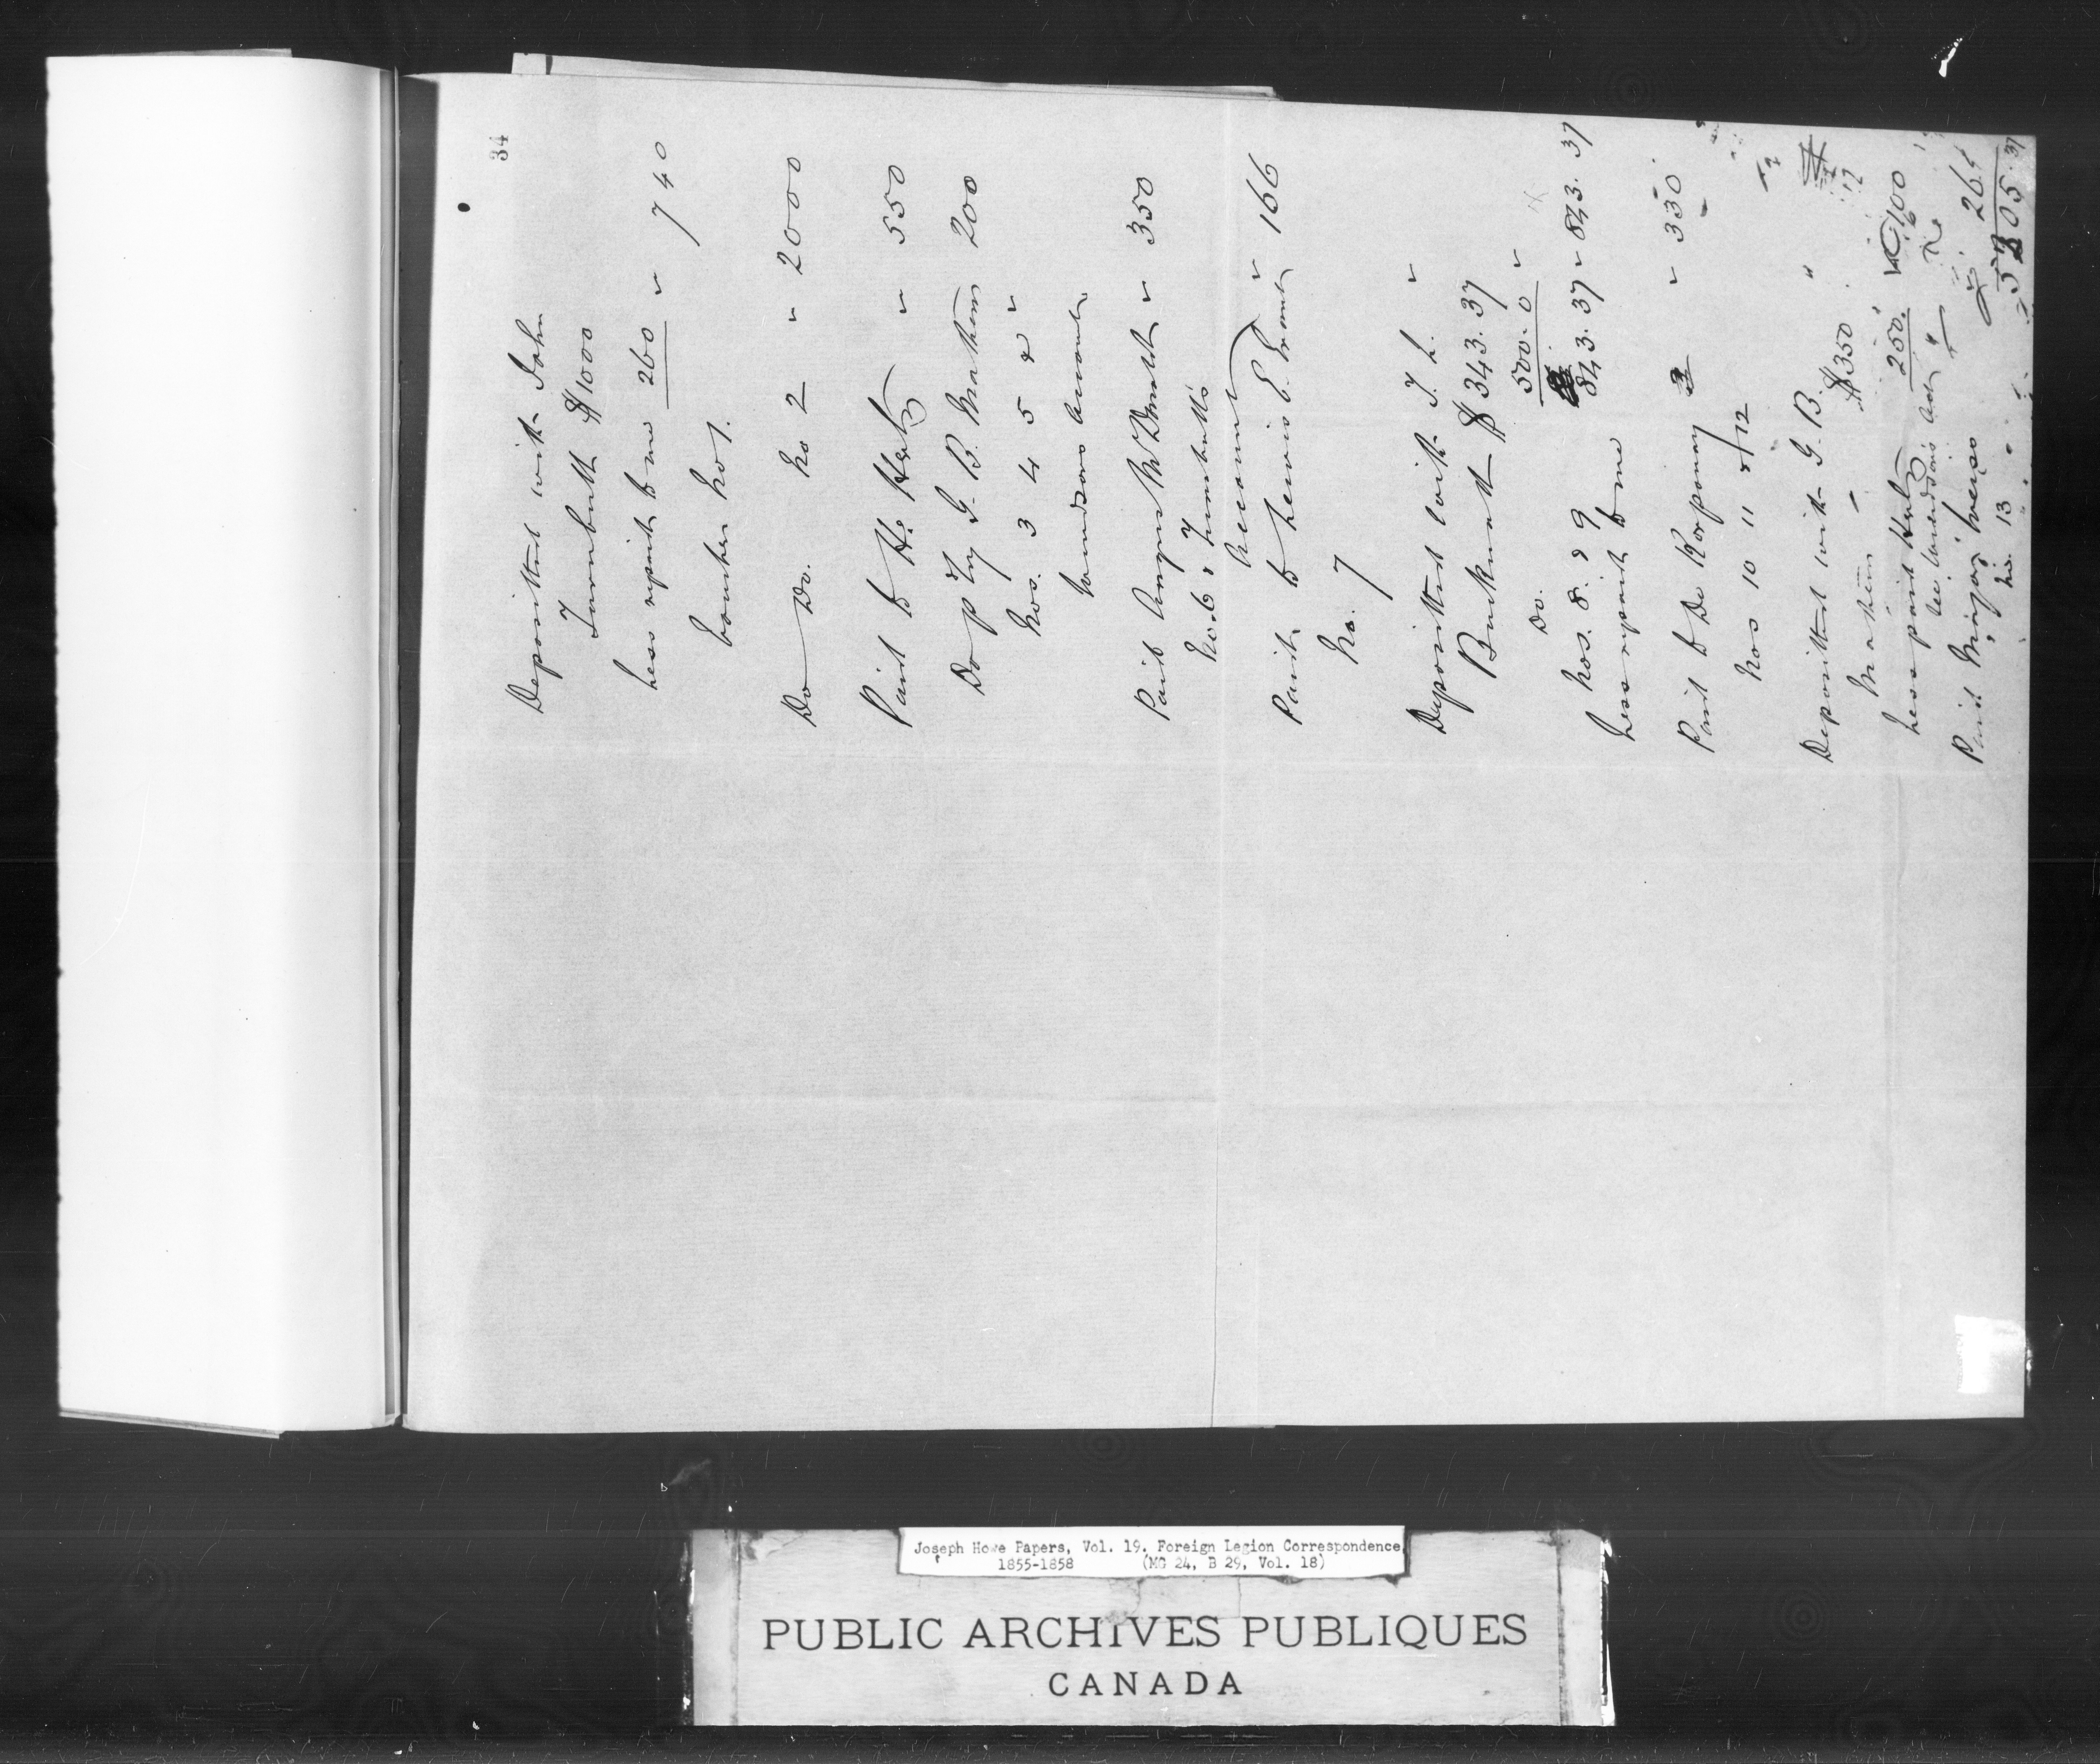 34
Deposited with John
Turnbull $1000
Less repaid to me 260 " 740
Voucher No 1.
Do Do. No 2 " 2000
Paid to H. Hertz " 550
Do p Try G. B. Mathew 200
Nos. 3 4 5 & "
Accounts
Paid Angus McDonald " 350
No. 6, Turnbull's
Account
Paid to Lewis E. " 166
No. 7
Deposited with T. L. "
Bucknall $343.37
Do. 500.0 "
843.37 " 843.37
Nos. 8. & 9
Less repaid to me
Paid to De Korponay " 330
Nos 10 11 & 12
Deposited with G. B. "
Mathew $350
Less paid Hertz 250. 100
Paid Major 265
No. 13
05.37
Joseph Howe Papers, Vol. 19. Foreign Legion Correspondence,
1855-1858 (MG 24, B 29, Vol. 18)
PUBLIC ARCHIVES PUBLIQUES
CANADA